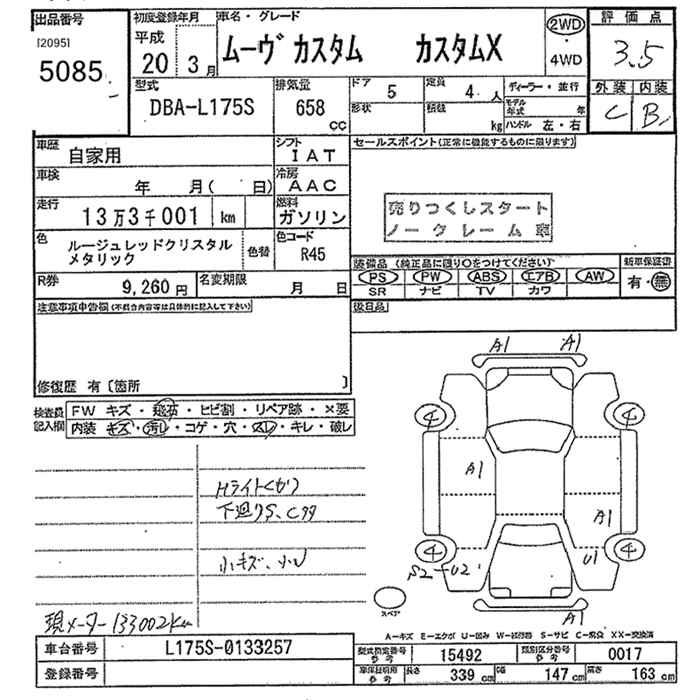 出品番号
[2095]
5085
初度登録年月
平成
20 3月
車名・グレード
ムーヴ カスタム カスタムX
2WD
・
4WD
評価点
3.5
外装 内装
C B
型式
DBA-L175S
排気量
658
CC
ドア
5
定員
4 人
形状
積載
kg
ディーラー・並行
モデル年式 年
ハンドル 左・右
車歴
自家用
シフト
IAT
車検
年 月( 日)
冷房
AAC
走行
13万3千001 km
燃料
ガソリン
色
ルージュレッドクリスタル
メタリック
色替
色コード
R45
R券
9,260円
名変期限
月 日
セールスポイント(正常に機能するものに限ります)
売りつくしスタート
ノークレーム車
装備品 (純正品に限り○をつけてください)
PS PW ABS エアB AW
SR ナビ TV カワ
新車保証書
有・無
注意事項申告欄(不具合内容等は具体的に記入して下さい)
後日品
修復歴 有〔箇所 〕
検査員
記入欄
FW キズ・飛石・ヒビ割・リペア跡・×要
内装 キズ・汚レ・コゲ・穴・スレ・キレ・破レ
Hライトくもり
下廻りS、Cタタ
小キズ、小U
現メーター133002Km
A1 A1
4 4
A1
A1
4 4
S2-U2
U1
スペア
A1
A-キズ E-エクボ U-凹み W-補修跡 S-サビ C-腐食 XX-交換済
車台番号
L175S-0133257
登録番号
型式指定番号
参考
15492
類別区分番号
参考
0017
車保証明用
参考
長さ
339 cm
幅
147 cm
高さ
163 cm